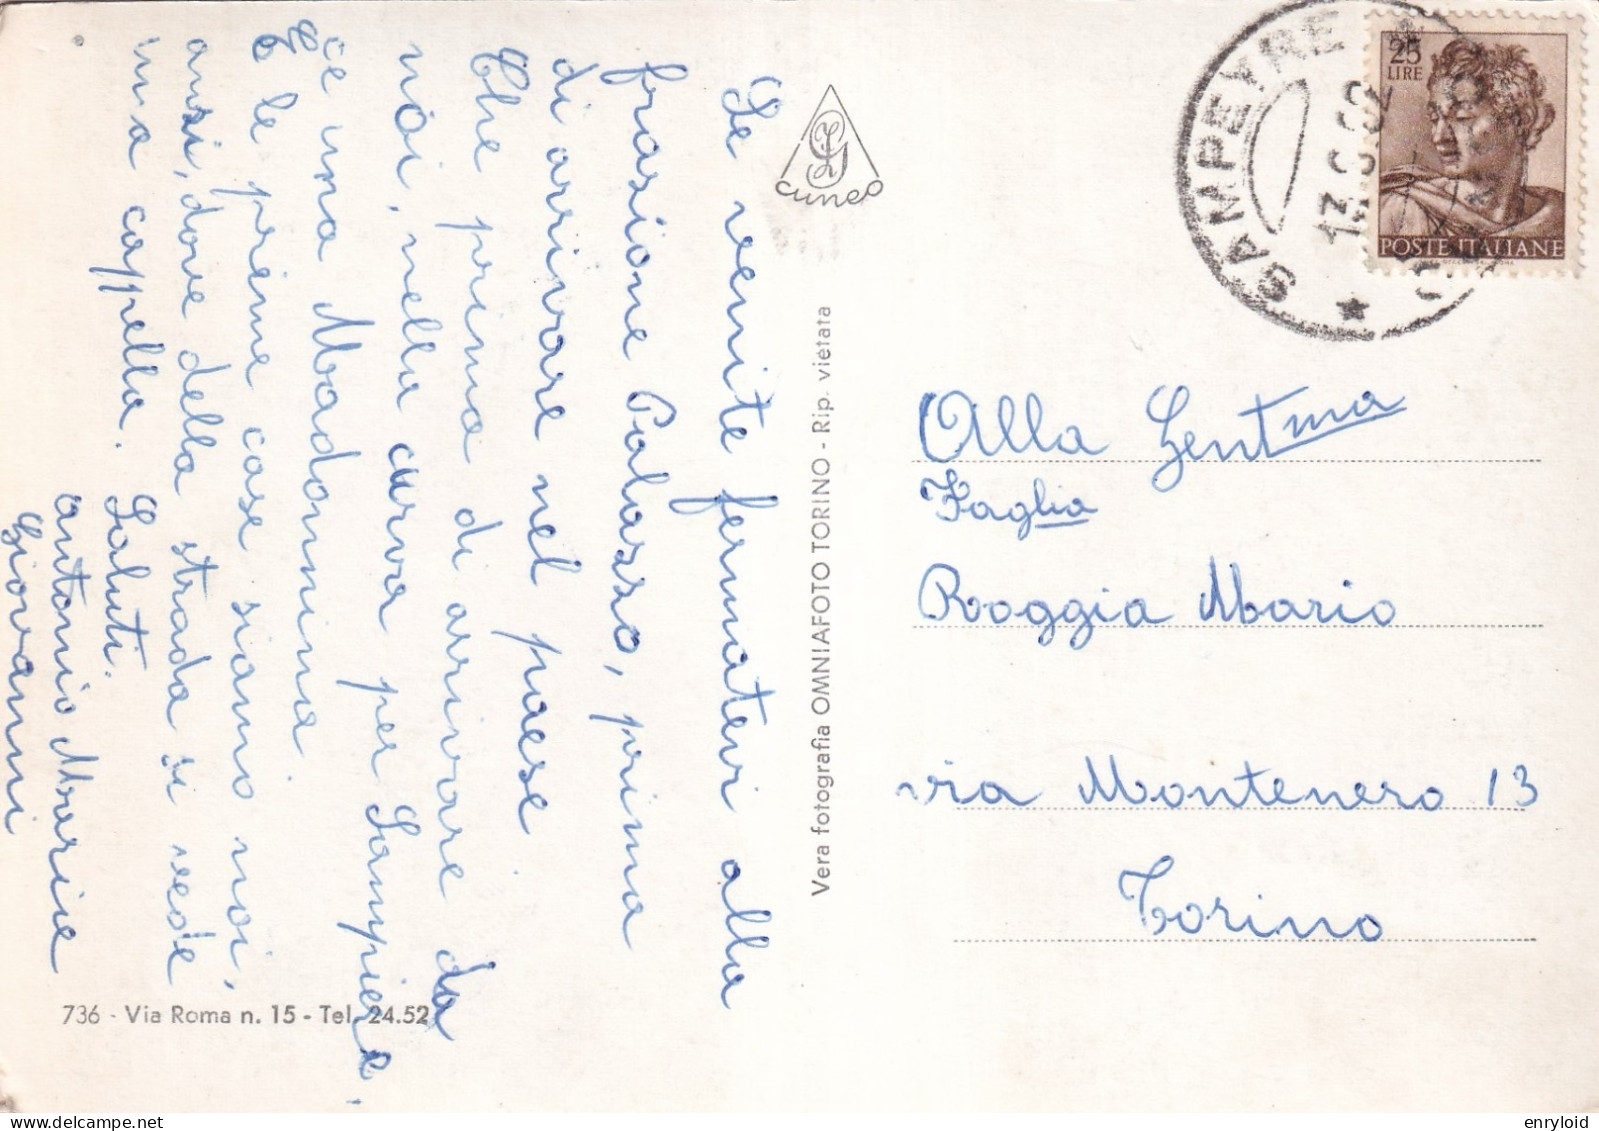 Se venite fermatevi alla
frazione Palazzo, prima
di arrivare nel paese
Che prima di arrivare da
noi, nella curva per Sampiere,
c'e una Madonnina.
E le prime case siamo noi,
anzi, dove della strada si vede
una cappella.
Saluti.
antonio Marie
Giovanni
736 - Via Roma n. 15 - Tel. 24.52
Vera fotografia OMNIAFOTO TORINO - Rip. vietata
cuneo
SAMPEYRE
25
LIRE
POSTE ITALIANE
Alla Gentma
Faglia
Roggia Mario
via Montenero 13
Torino
enryloid